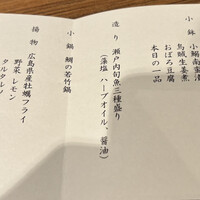 小鉢
小鯛南蛮漬
烏賊生姜煮
おぼろ豆腐
本日の一品
造り 瀬戸内旬魚三種盛り
(藻塩、ハーブオイル、醤油)
小鍋 鯛の若竹鍋
揚物 広島県産牡蠣フライ
野菜 レモン
タルタル